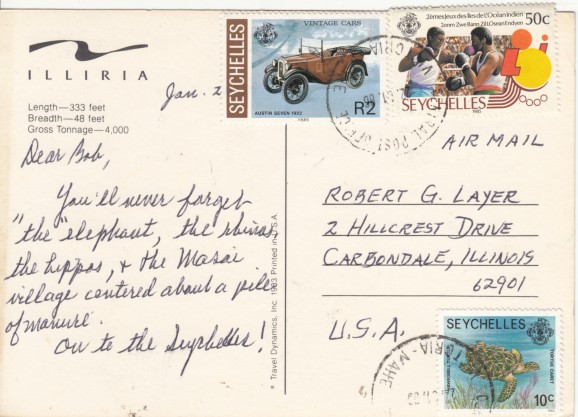 ILLIRIA
Length—333 feet
Breadth—48 feet
Gross Tonnage—4,000
Jan. 2
Dear Bob,
You'll never forget
"the" elephant, the rhinos,
the hippos, & the Masai
village centered about a pile
of manure.
On to the Seychelles!
Travel Dynamics, Inc. 1983 Printed in U.S.A.
SEYCHELLES
VINTAGE CARS
AUSTIN SEVEN 1922
R2
1985
50c
2èmes Jeux des Iles de L'Océan Indien
SEYCHELLES
1985
CENTRAL POST OFFICE
AIR MAIL
ROBERT G. LAYER
2 HILLCREST DRIVE
CARBONDALE, ILLINOIS
62901
U.S.A.
SEYCHELLES
10c
TORTUE CARET
VICTORIA-MAHE